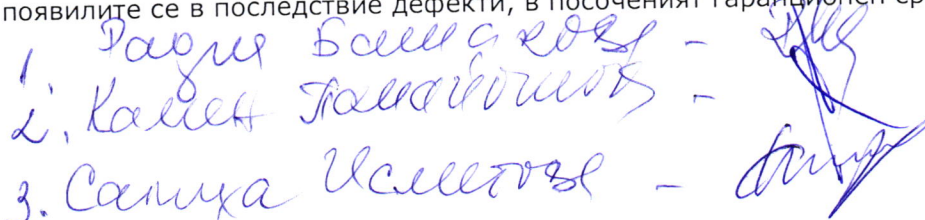 появилите се в последствие дефекти, в посоченият гаранционен ср
1. Радия Башакова -
2. Камен Панайотов -
3. Салиха Исметова -